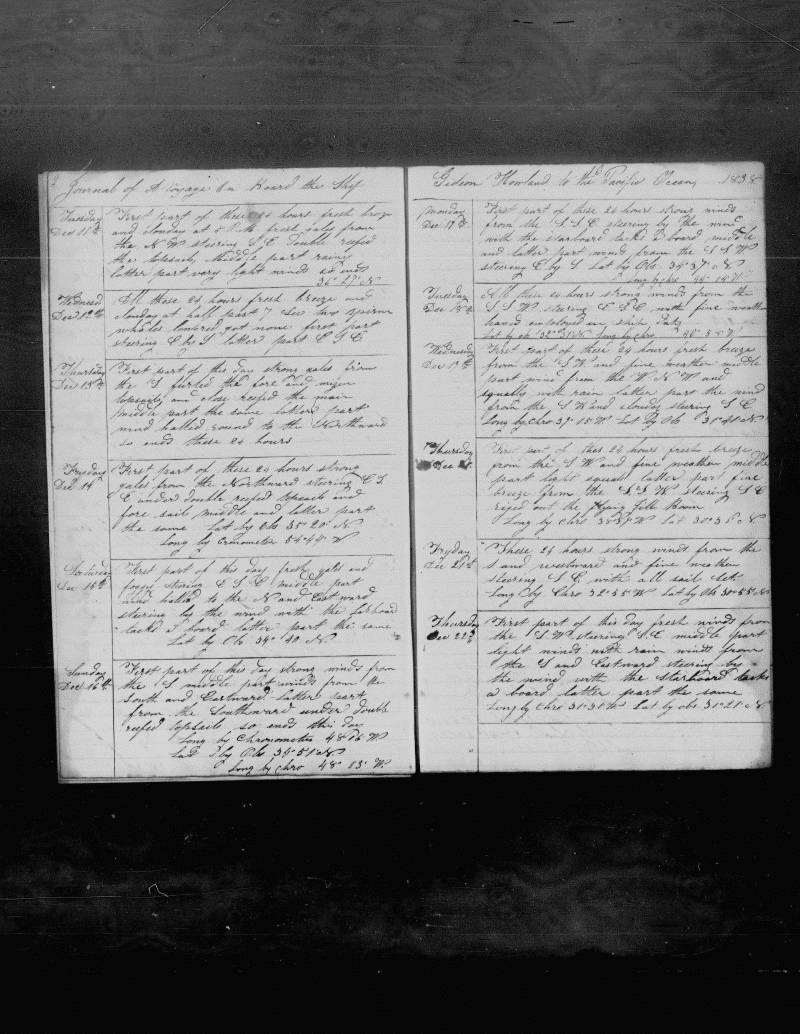 Journal of A Voyage On Board the Ship
Tuesday
Dec 11th
First part of these 24 hours fresh breeze
and cloudy at 8 P.M fresh gales from
the N W steering S E double reefed
the topsails Middle part rainy
latter part very light wind so ends
36° 27' N
Wednesd
Dec 12th
All these 24 hours fresh breeze and
cloudy at half part 7 see two sperm
whales lowered got none first part
steering E by S latter part E S E
Thursday
Dec 13th
First part of this day strong gales from
the S furled the fore and
topsails and close reefed the main
middle part the same latter part
wind halled round to the Northward
so ends these 24 hours
Fryday
Dec 14
First part of these 24 hours strong
gales from the Northward steering E S
E under double reefed topsails and
fore sail middle and latter part
the same Lat by Obs 35° 20' N
Long by Cronometer 54° 44' W
Saturday
Dec 15th
First part of this day fresh gales and
foggy stering E S E middle part
wind halled to the N and Eastward
steering by the wind with the larboard
tacks a board latter part the same
Lat by Ob 34° 40 N
Sunday
Dec 16th
First part of this day strong winds from
the S middle part winds from the
South and Eastward latter part
from the Southward under double
reefed topsails so ends this day
Long by Chronometer 48° 16 W
Lat by Obs 34° 51' N
Long by Chro 48° 13' W
Gideon Howland to the Pacific Ocean, 1838
Monday
Dec 17th
First part of these 24 hours strong winds
from the S S E steering by the wind
with the starboard tacks a board middle
and latter part winds from the S S W
steering E by S Lat by Obs 34° 37' N
Long by chro 44° 14' W
Tuesday
Dec 18th
All these 24 hours strong winds from the
S S W steering E S E with fine weather
hands employed on ship duty
Lat by ob 32° 31 N Long by Chro 40° 55 W
Wednesday
Dec 19th
First part of these 24 hours fresh breeze
from the S W and fine weather middle
part wind from the W N W and
squally with rain latter part the wind
from the S W and cloudy steering S E
Long by Chro 37° 15' W Lat by Ob 31° 41 N
Thursday
Dec
First part of thes 24 hours fresh breeze
from the S W and fine weather middle
part light squall latter part fine
breeze from the S S W steering S E
reefed out the flying Gibb Boom
Long by Chro W Lat 30° 36 N
Fryday
Dec 21st
These 24 hours strong winds from the
S and westward and fine weather
steering S E with all sail set
Long by Chro 32° 55 W Lat by Obs 30° 55' N
Thursday
Dec 22d
First part of this day fresh winds from
the S W steering S E middle part
light winds with rain winds from
the S and Eastward steering by
the wind with the starboard tacks
a board latter part the same
Long by Chro 31° 31' W Lat by obs 31° 21' N